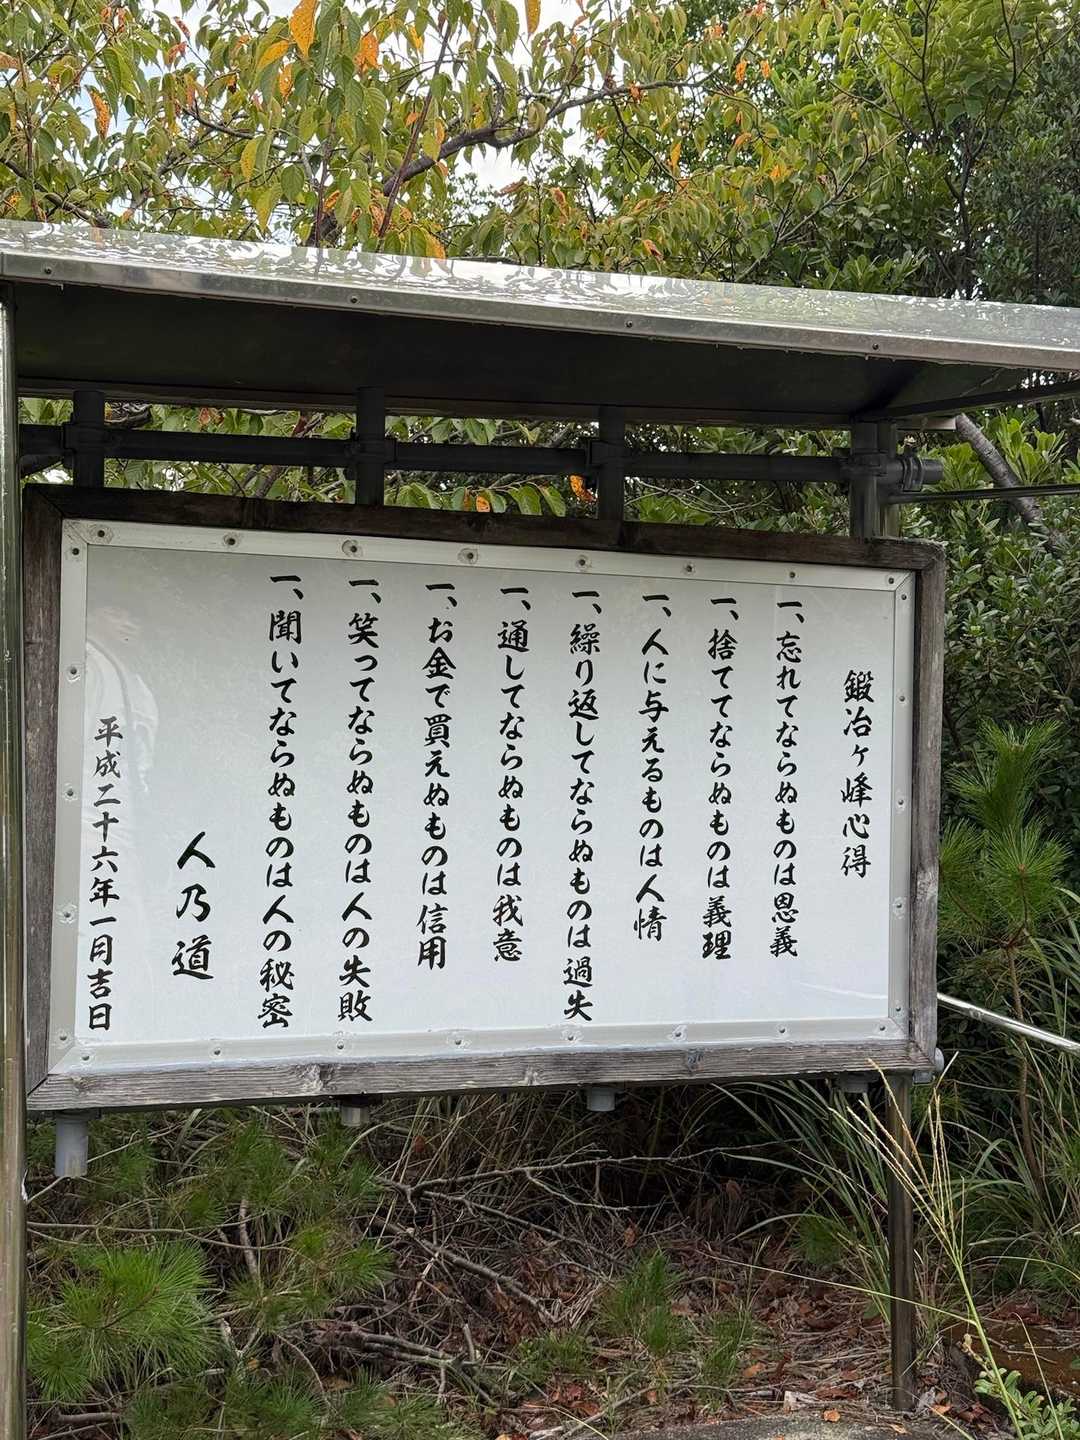 鍛冶ヶ峰心得
一、忘れてならぬものは恩義
一、捨ててならぬものは義理
一、人に与えるものは人情
一、繰り返してならぬものは過失
一、通してならぬものは我意
一、お金で買えぬものは信用
一、笑ってならぬものは人の失敗
一、聞いてならぬものは人の秘密
人乃道
平成二十六年一月吉日